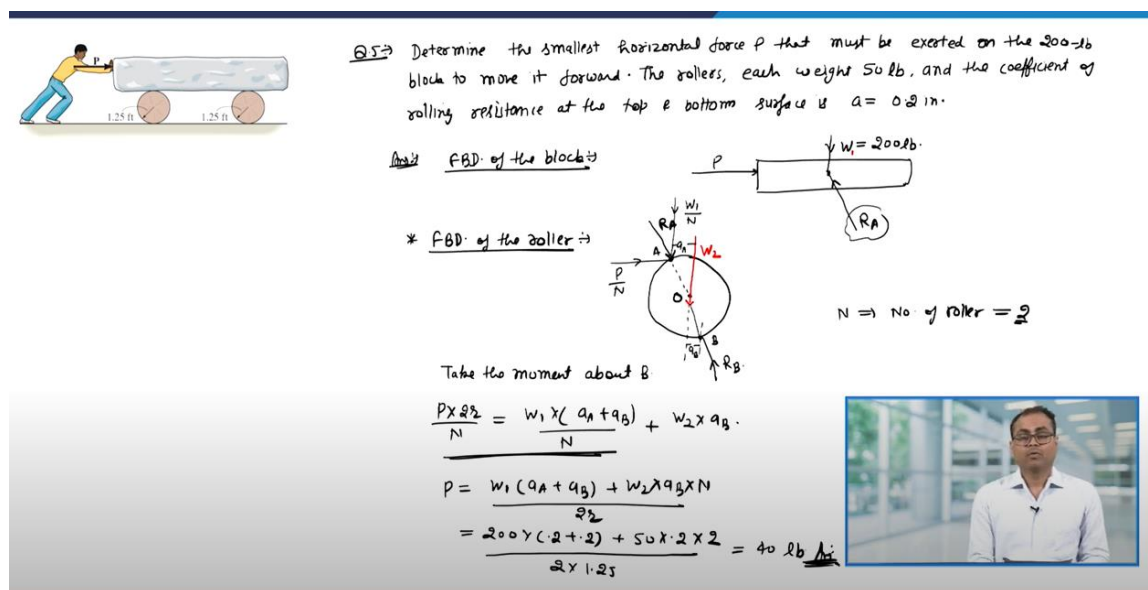 P
1.25 ft
1.25 ft
Q.5⇒ Determine the smallest horizontal force P that must be exerted on the 200-lb
block to move it forward. The rollers, each weight 50 lb, and the coefficient of
rolling resistance at the top & bottom surface is a = 0.2 in.
Ans:⇒ FBD. of the block:⇒
P
W₁ = 200lb.
R_A
* FBD. of the roller:⇒
W₁/N
R_A
a_A
W₂
A
P/N
O
B
a_B
R_B.
N ⇒ No. of roller = 2
Take the moment about B.
P×2r/N = W₁×(a_A+a_B)/N + W₂×a_B.
P = W₁(a_A+a_B) + W₂×a_B×N/2r
= 200×(.2+.2) + 50×.2×2/2×1.25 = 40 lb Ans